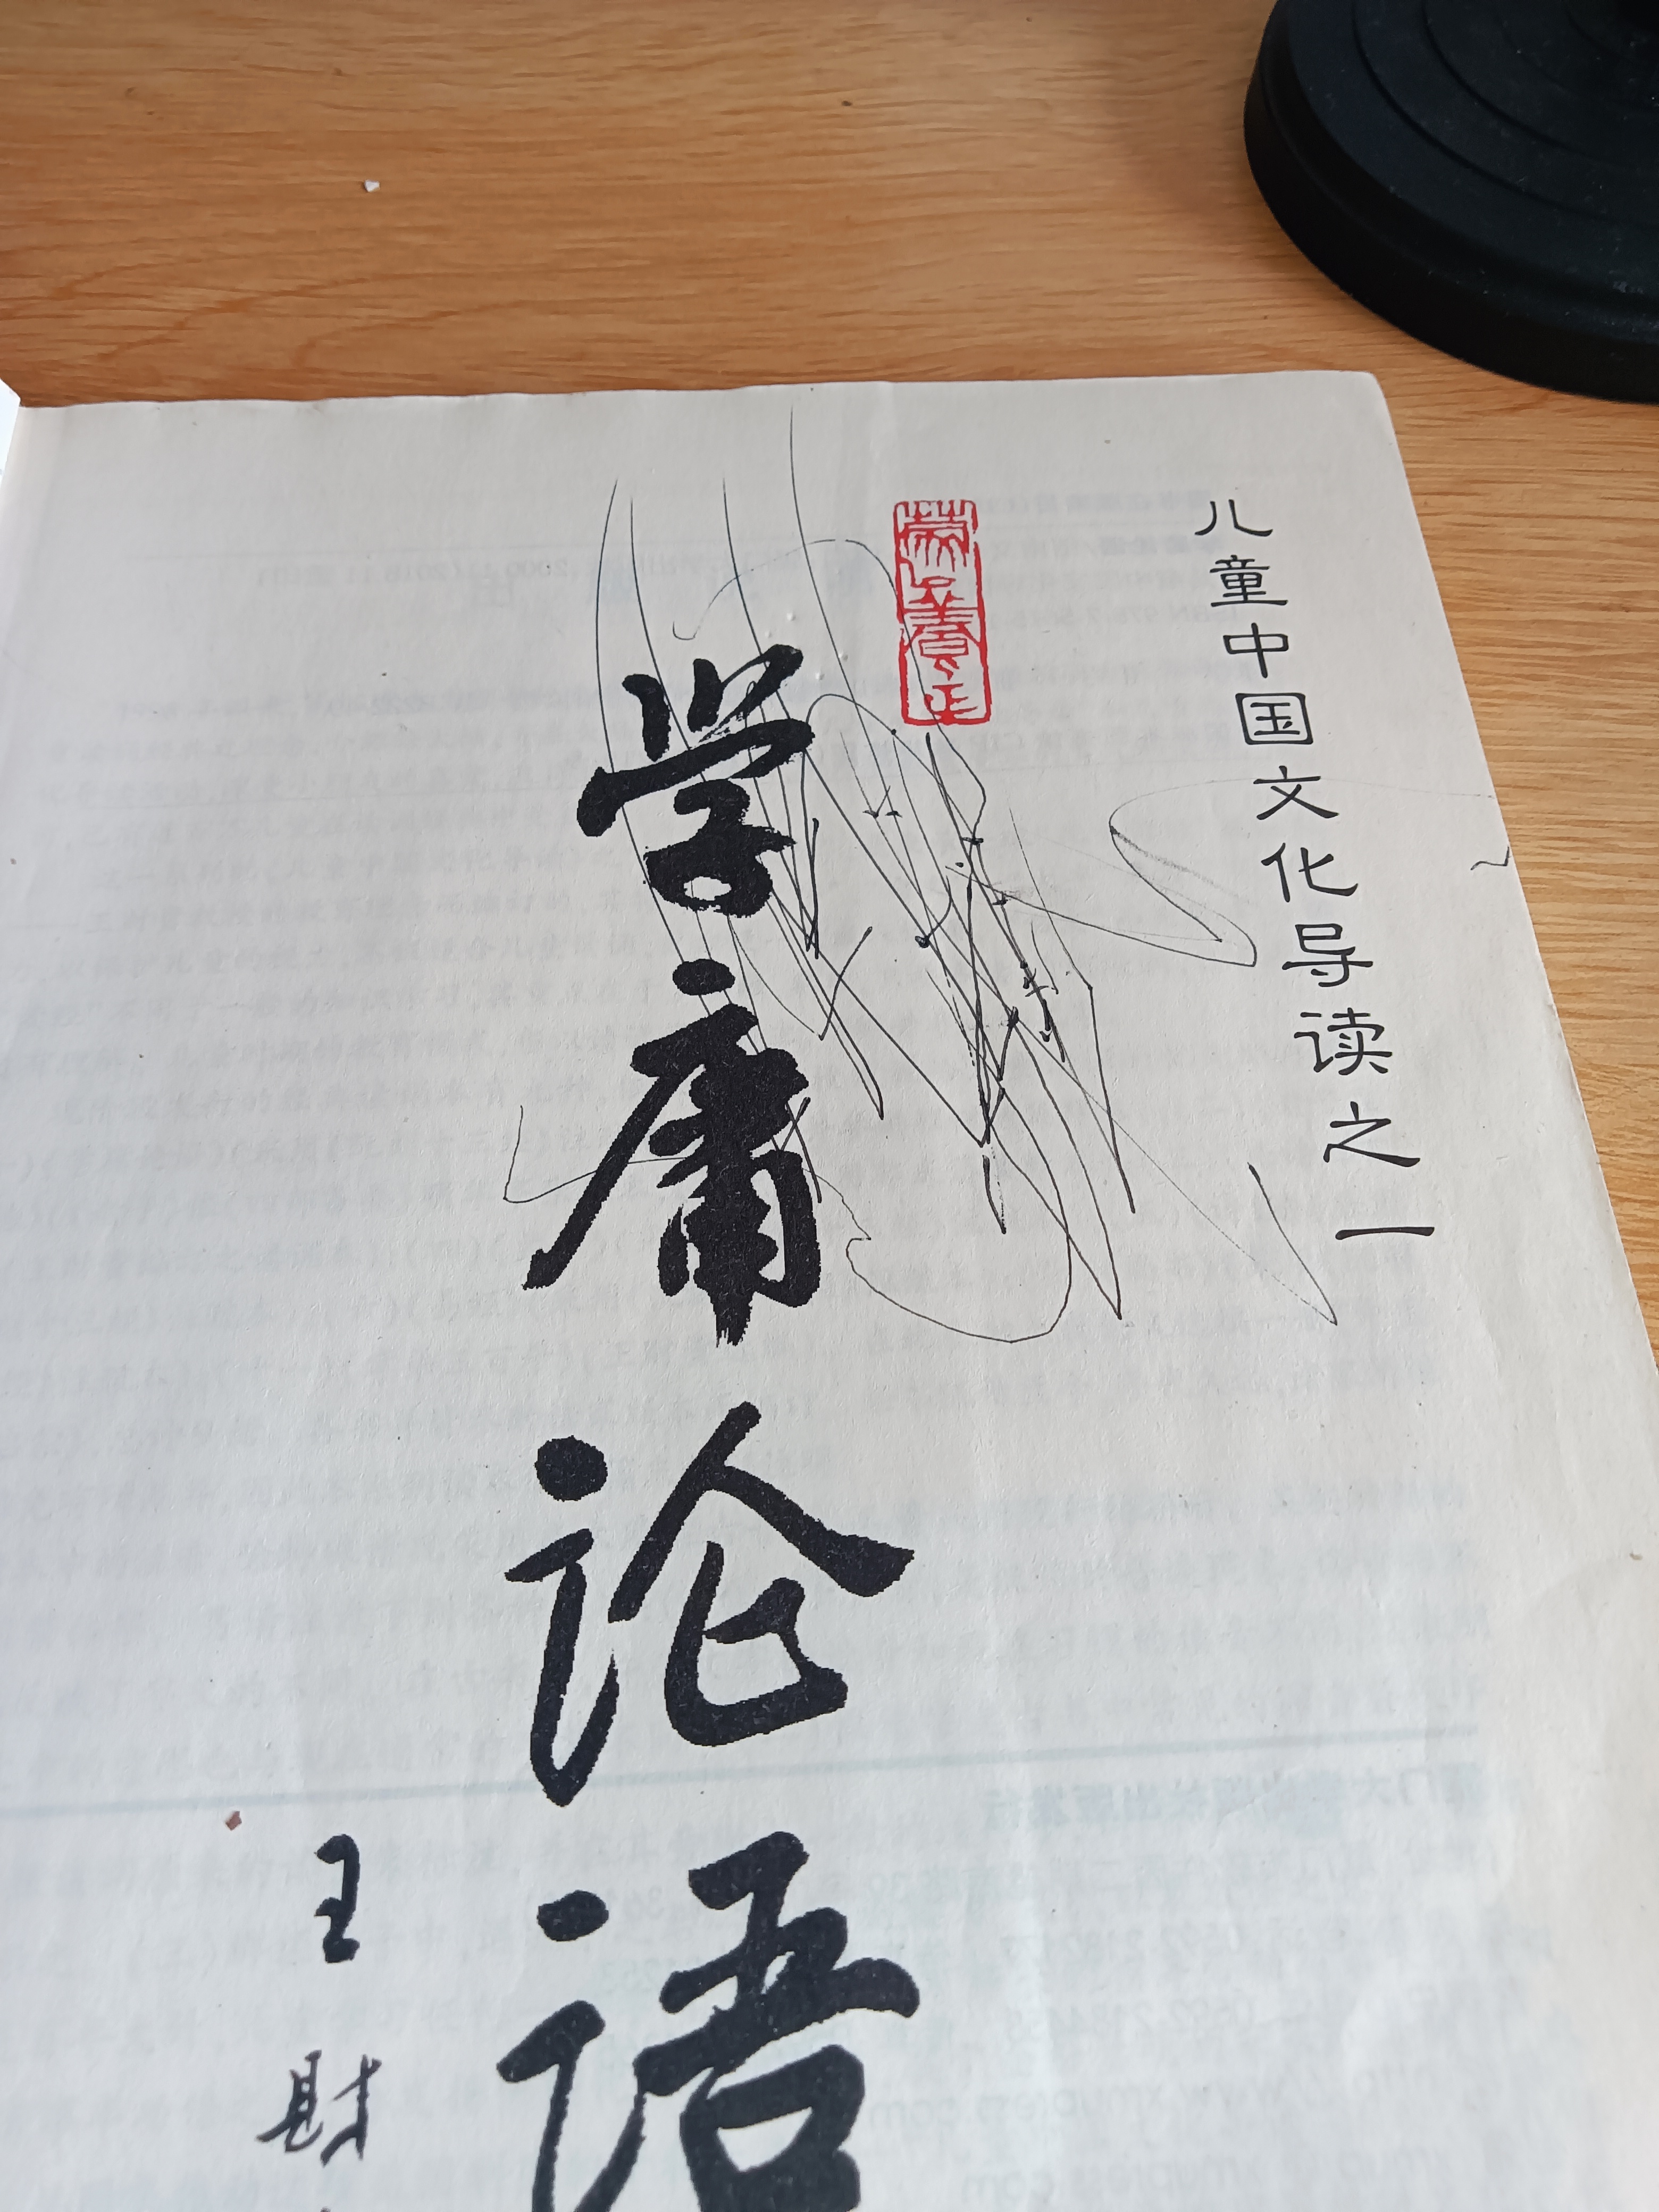 儿童中国文化导读之一
蒙以养正
学庸论语
王财